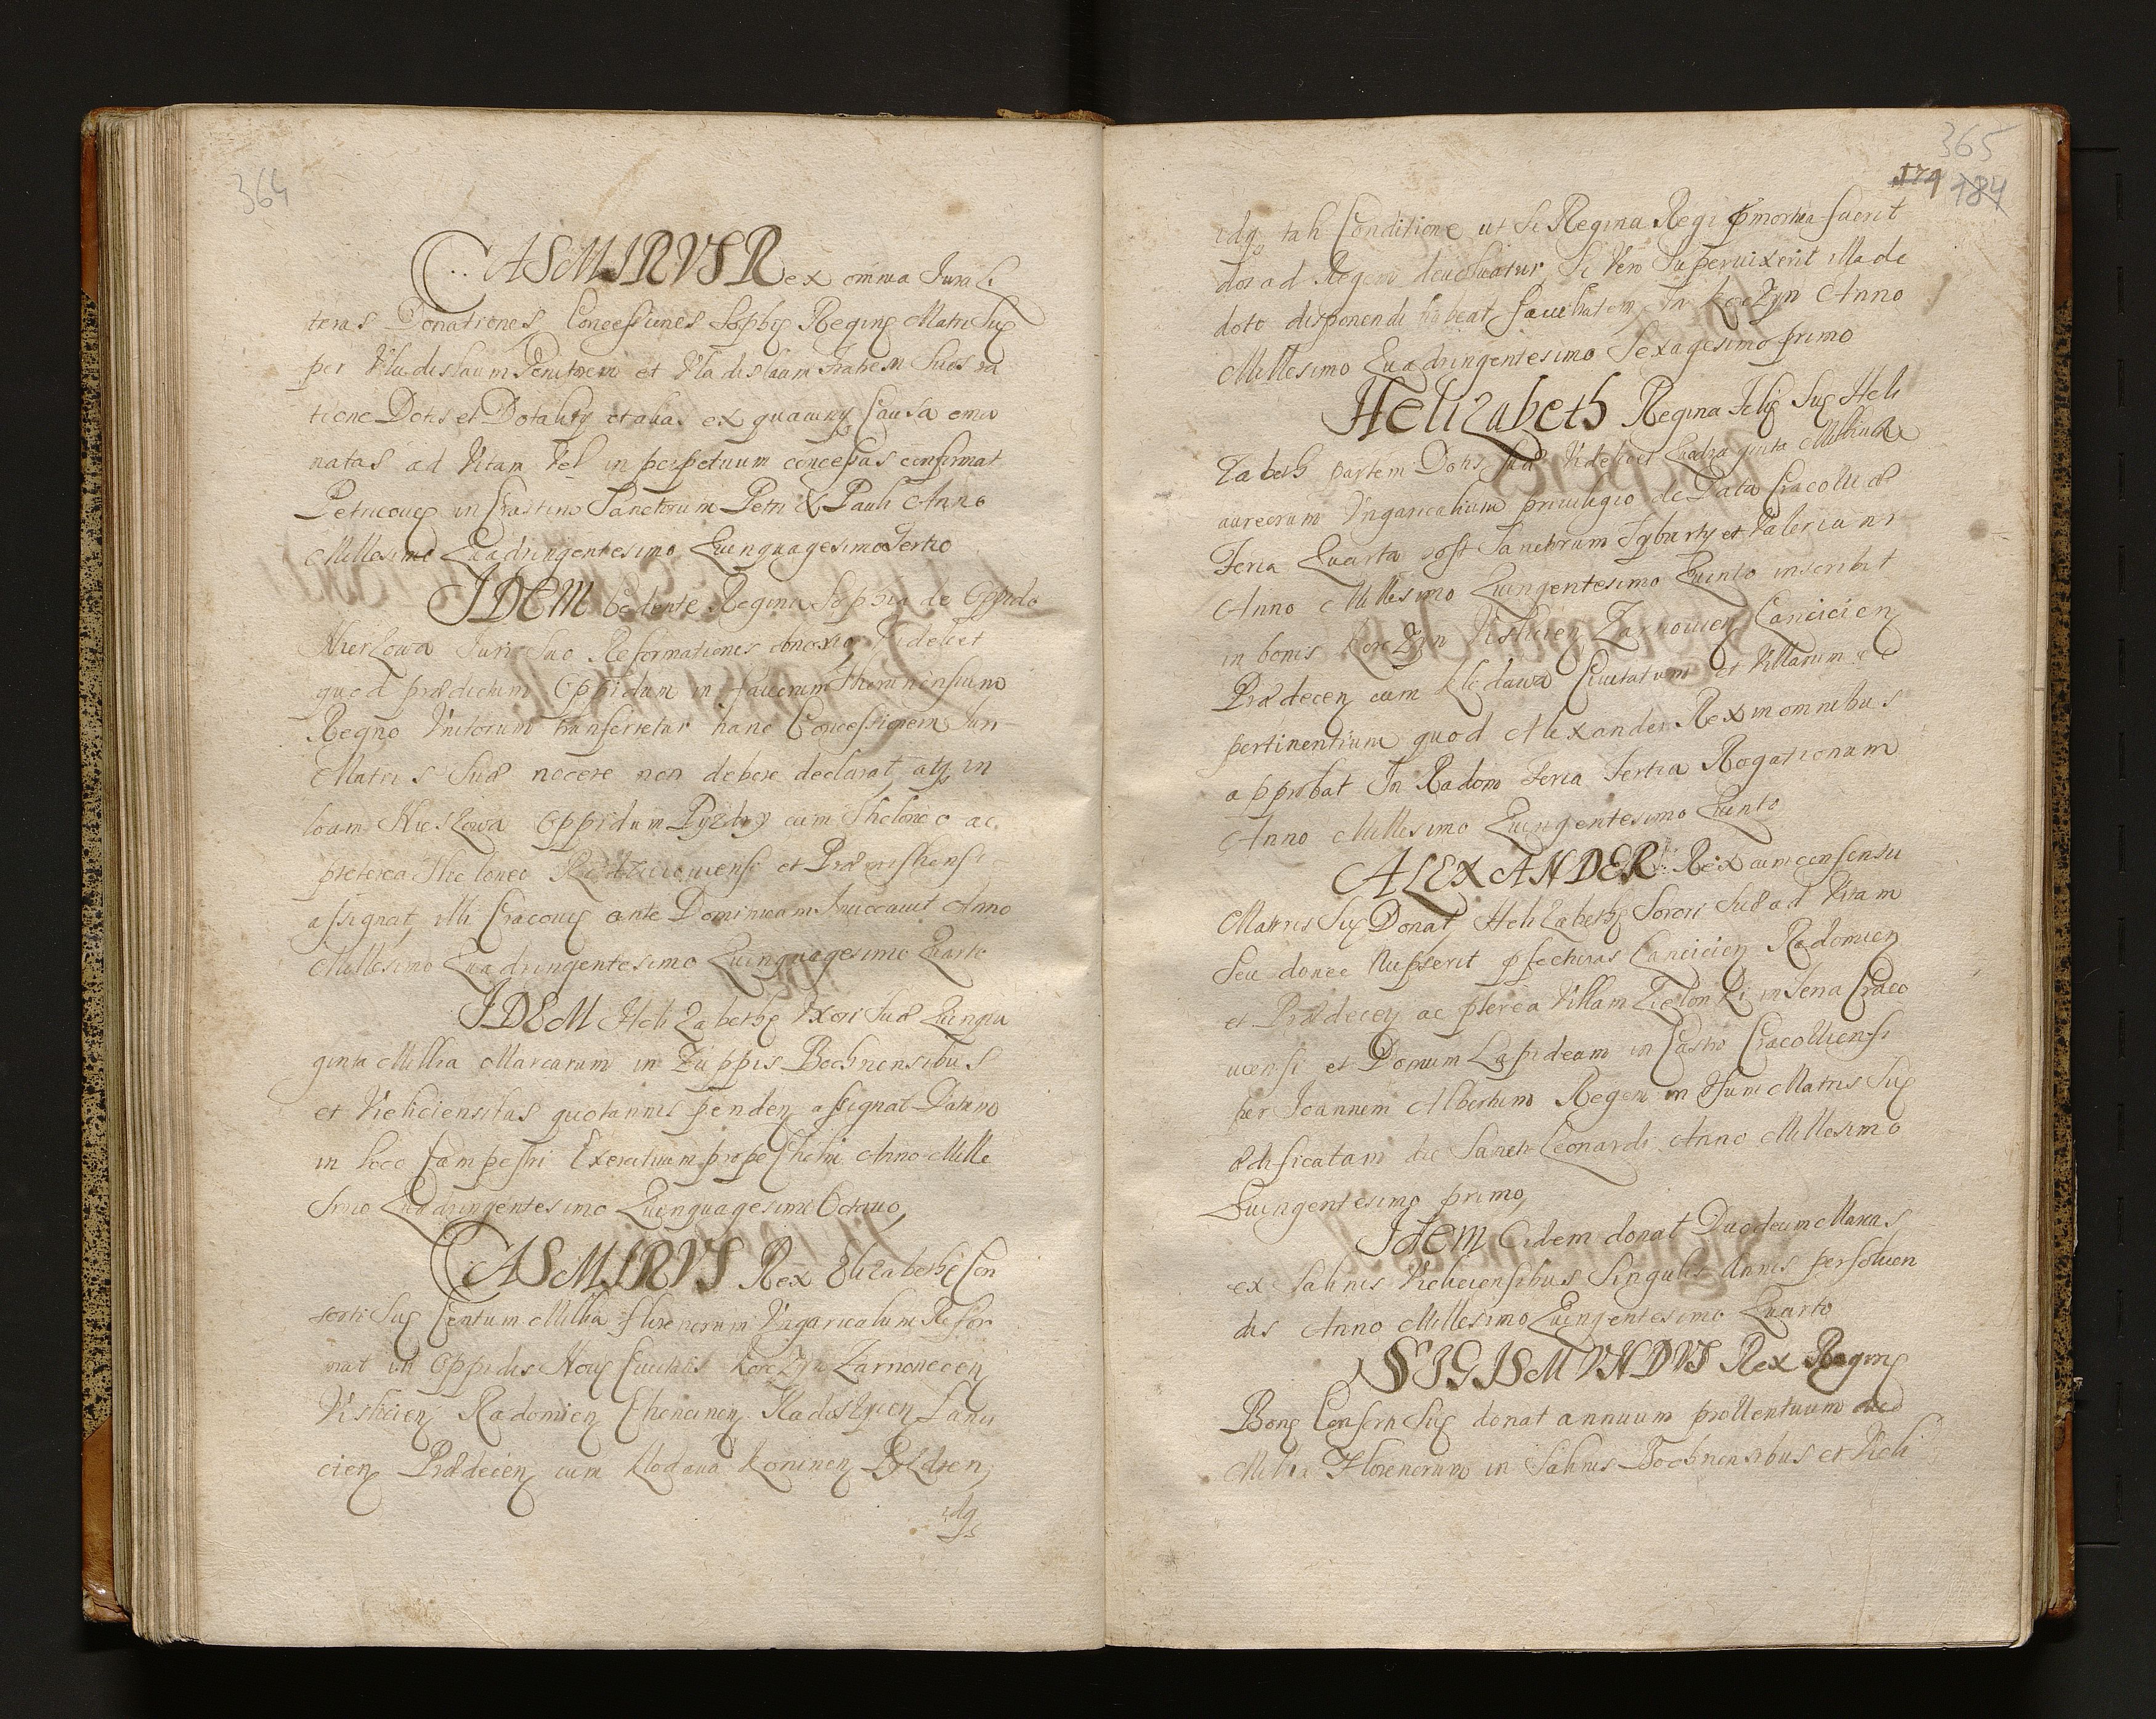 364
CASMIRVS Rex omnia Jura Li
teras Donationes Concessiones Sophię Reginę Matri Suę
per Vladislaum Genitorem et Vladislaum Fratrem Suos ra
tione Dotis et Dotalitij et alias ex quauis Causa ema
natas ad Vitam Vel in perpetuum concessas confirmat
Petricouię in Crastino Sanctorum Petri & Pauli Anno
Millesimo Quadringentesimo Quinquagesimo Tertio
IDEM Cedente Regina Sophia de Oppido
Nieszowa Juri Suo Reformationis obnoxio Videlicet
quod prædictum Oppidum in fauorem Thorunensium
Regno Vnitorum transferretur hanc Concessionem Juri
Matris Suæ nocere non debere declarat, atq in
locum Nieszowa Oppidum Pyzdry cum Theloneo ac
preterea Theloneo et Præmisliensi
assignat, illi Cracouię ante Dominicam Inuocauit Anno
Millesimo Quadringentesimo Quinquagesimo Quarto
IDEM Helizabethę Vxori Suæ Quinqua
ginta Millia Marcarum in Zuppis Bochnensibus
et Vieliciensibus quotannis penden assignat Datum
in loco Campestri Exercituum prope Chelm Anno Mille
simo Quadringentesimo Quinquagesimo Octauo,
CASMIRVS Rex Elizabethę Con
sorti Suę Centum Millia Florenorum Vngaricalium Refor
mat in Oppidis Nouę Ciuitatis Korczyn Zarnouecen
Vislicien Radomien Chencinen Radoszycen Lanci
cien Prædecen cum Klodaua Koninen Pyzdren,
idq
365
174 184
idq tali Conditione ut Si Regina Regi pmortua fuerit
dos ad Regem deuoluatur, Si Vero Superuixerit illa de
dote disponendi habeat facultatem, In Korczyn Anno
Millesimo Quadringentesimo Sexagesimo primo
Helizabeth Regina Filię Suę Heli
zabeth partem Dotis Suæ Videlicet Quadraginta Millium
aureorum Vngaricalium priuilegio de Data Cracouiæ
Feria Quarta post Sanctorum Tyburtij et Valeriani
Anno Millesimo Quingentesimo Quinto inscribit
in bonis Korczyn Vislicien Zarnouien Lancicien
Prædecen cum Klodawa Ciuitatum et Villarum
pertinentium quod Alexander Rex in omnibus
approbat In Radom Feria Tertia Rogationum
Anno Millesimo Quingentesimo Quinto
ALEXANDER Rex cum consensu
Matris Suę Donat, Helizabethę Sorori Suæ ad Vitam
Seu donec Nupserit pfecturas Lancicien Radomien
et Prædecen ac pterea Villam in Terra Craco
uiensi et Domum Lapideam in Castro Cracouiensi
per Joannem Albertum Regem in Vsum Matris Suę
ædificatam die Sancti Leonardi Anno Millesimo
Quingentesimo primo,
Idem Eidem donat Duodecim Marcas
ex Salinis Vieliciensibus Singulis Annis persoluen
das Anno Millesimo Quingentesimo Quarto
SIGISMVNDVS Rex Reginę
Bonę Consorti Suę donat annuum prouentuum duo
Millia Florenorum in Salinis Bochnensibus et Vieli